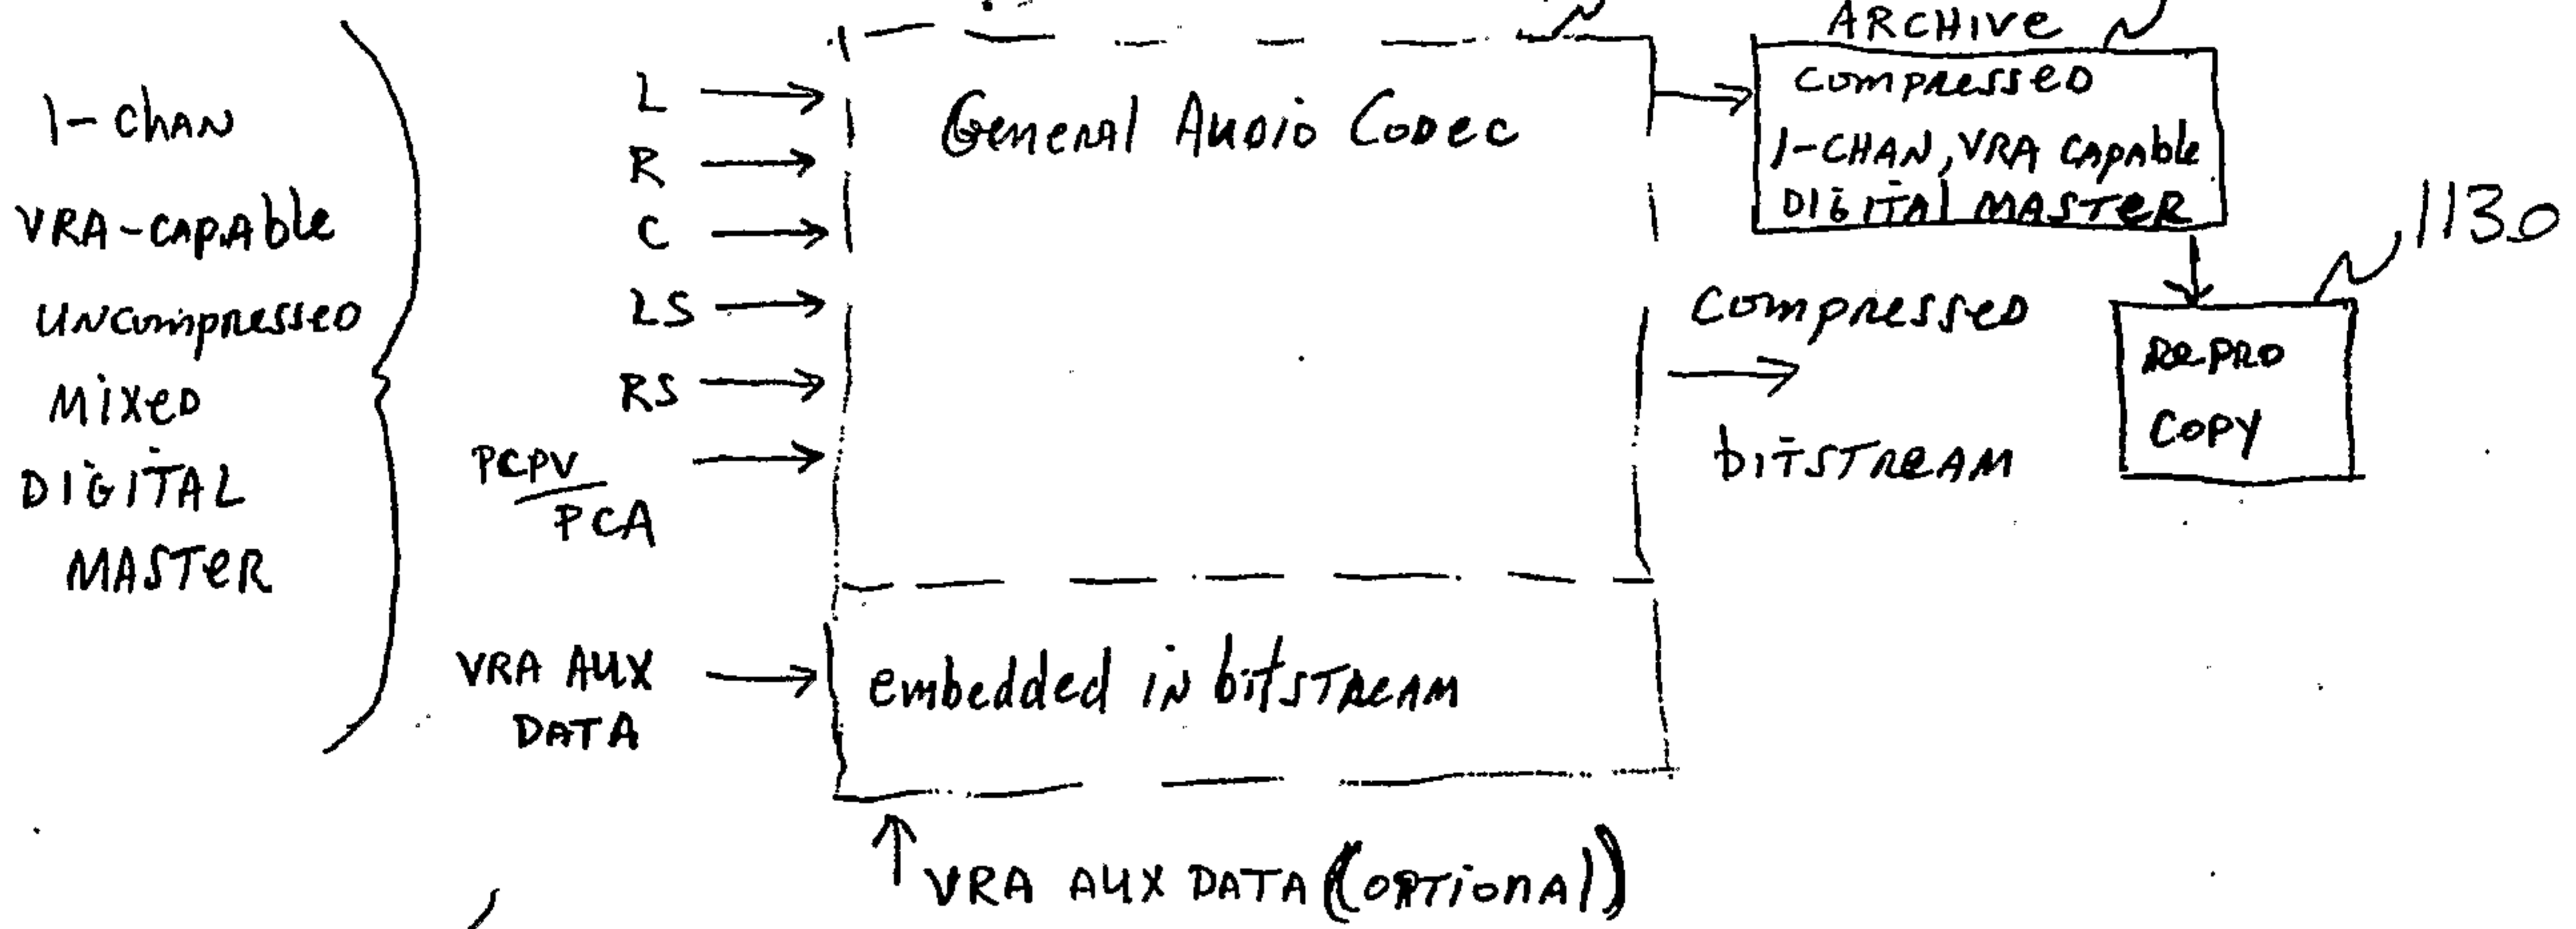 1-CHAN
VRA-CAPAble
UNcompressed
MixeD
DIGITAL
MASTER
L
R
C
LS
RS
PCPV/PCA
VRA AUX
DATA
General Audio Codec
embedded in bitSTREAM
VRA AUX DATA (OPTIONAl)
ARCHIVe
compressed
1-CHAN, VRA CApAble
DIGITAl MASTeR
compresseD
bitSTReAM
1130
RePRO
COPY